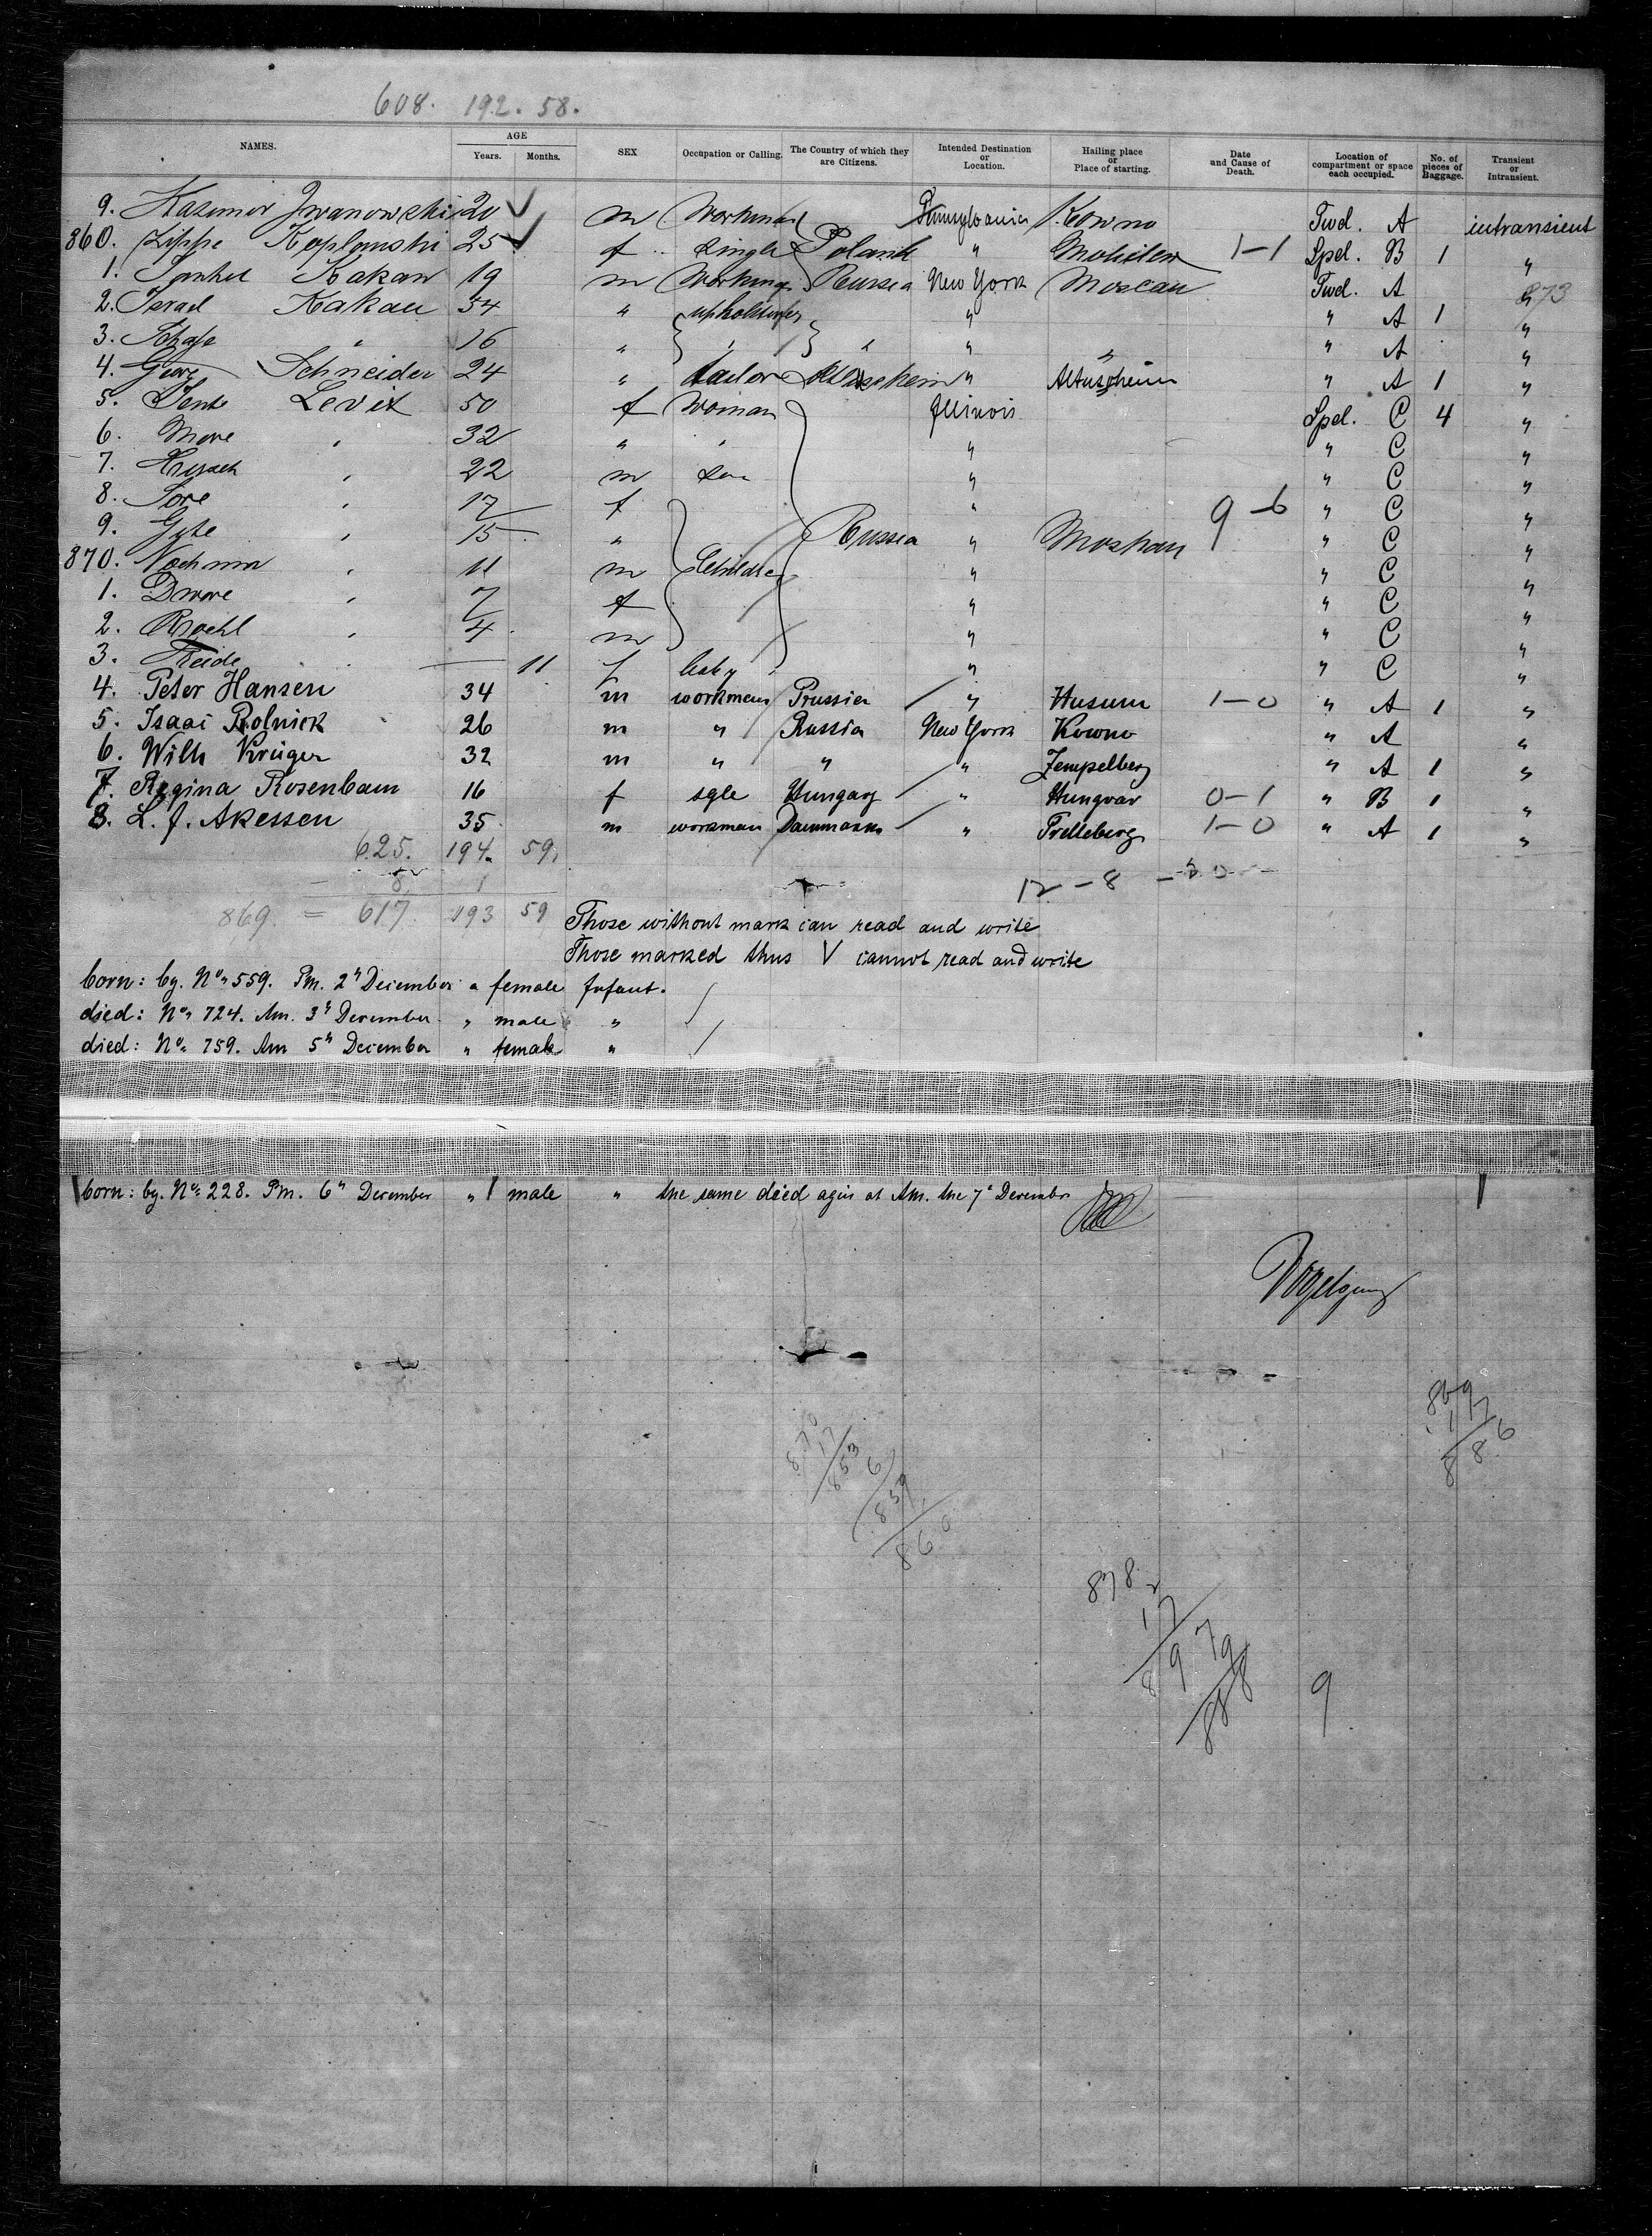 608. 192. 58.
NAMES. AGE Years. Months. SEX Occupation or Calling. The Country of which they are Citizens. Intended Destination or Location. Hailing place or Place of starting. Date and Cause of Death. Location of compartment or space each occupied. No. of pieces of Baggage. Transient or Intransient.
9. Kasimir Iwanowski 20 V m Workman Pennsylvania Kowno Twd. A intransient
860. Lippe Kaplanski 25 V f single Poland " 1-1 Spel. B 1 "
1. Kakan 19 m Workman Russia New York Moscau Twd. A " 873
2. Israel Kakan 54 " upholsterer " " A 1 "
3. " 16 " " " " " " A "
4. Georg Schneider 24 " tailor " " A 1 "
5. Levit 50 f Woman Illinois Spel. C 4 "
6. " 32 " " " " C "
7. " 22 m son " " C "
8. Sore " 17 f " " C "
9. " 15 " Russia " Moskau 9-6 " C "
870. Nochmin " 11 m Children " " C "
1. Dwore " 7 f " " C "
2. Rochl " 4 m " " C "
3. 11 f baby " " C "
4. Peter Hansen 34 m workman Prussia " Husum 1-0 " A 1 "
5. Isaac Rolnick 26 m " Russia New York Kowno " A "
6. Wilh Krüger 32 m " " " Zempelberg " A 1 "
7. Regina Rosenbaum 16 f sgle Hungary " Hungvar 0-1 " B 1 "
8. L. J. Akessen 35 m workman " Trelleborg 1-0 " A 1 "
625. 194. 59.
- 8 1 12-8
869. = 617. 193 59 Those without mark can read and write
Those marked thus V cannot read and write
born: by. No. 559. Pm. 2n December a female Infant.
died: No. 724. Am. 3n December " male "
died: No. 759. Am 5n December " female "
born: by. No. 228. Pm. 6n December " male " the same died agin at Am. the 7n December
870
17
853
6
859
860
869
17
886
878
17
879
888
9